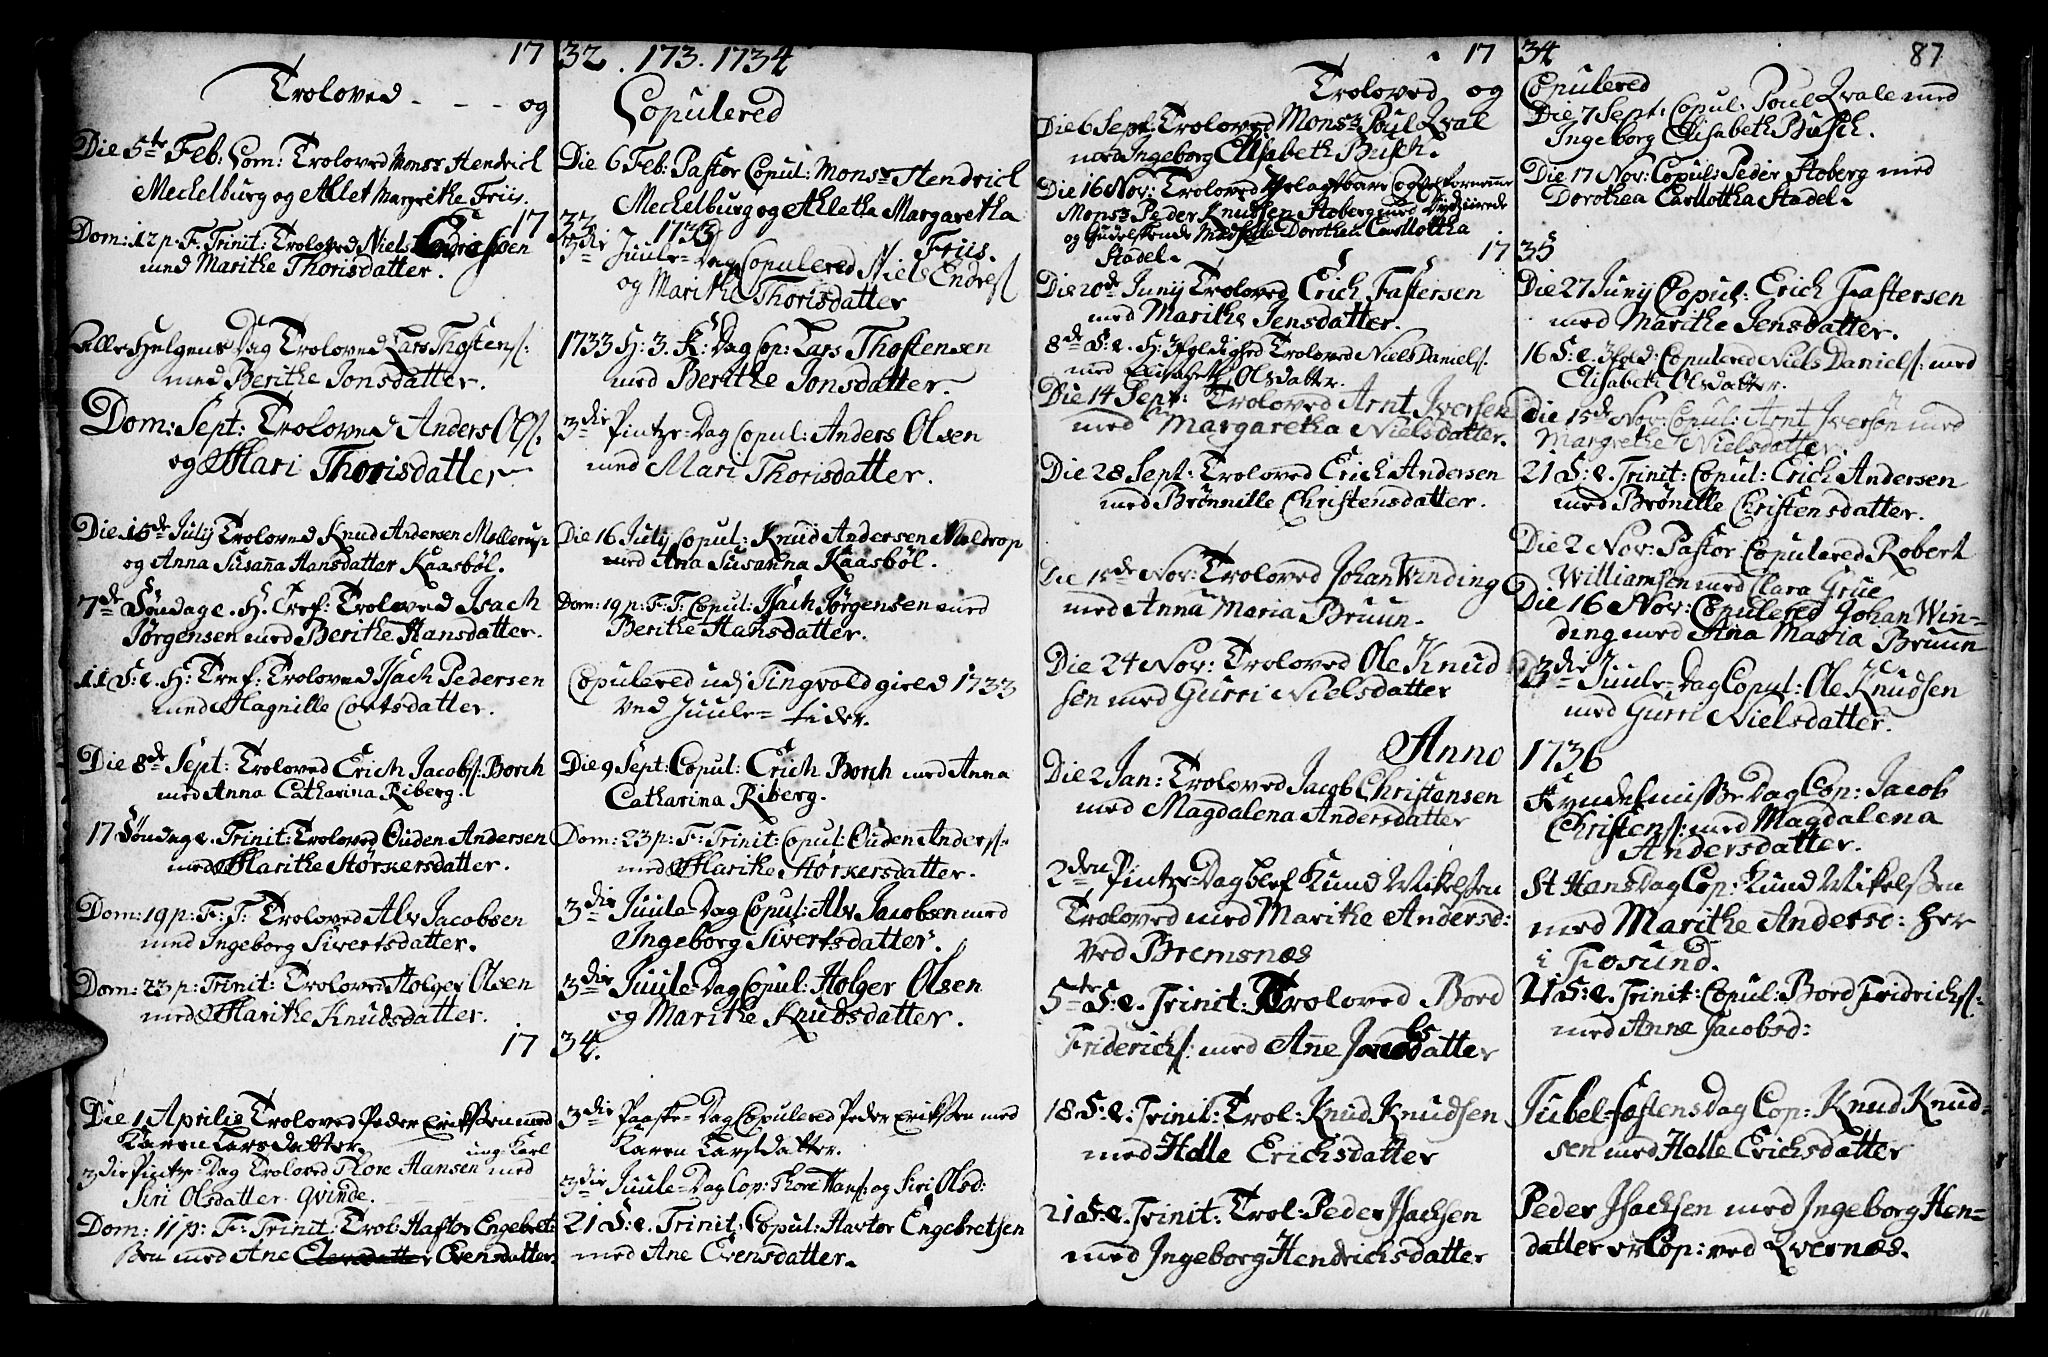 17
Troloved - - - og
Die 5te Feb: Dom: Troloved Monsr Hendrich
Mechelburg og Ahlet Margrethe Friis.
17
Dom: 12 p. F. Trinit: Troloved Niels Endresen
med Marithe Thorisdatter.
Alle Helgens Dag Troloved Lars Thostens:
med Berithe Jonsdatter.
Dom: Sept: Troloved Anders Ols:
og Mari Thorisdatter
Die 15de July Troloved Knud Andersen
og Anna Susana Hansdatter Kaasböl.
7de Söndag e. H. Tref: Troloved Isach
Jörgensen med Berithe Hansdatter.
11 S: e. H: Tref: Troloved Isach Pedersen
med Magnille Cortsdatter.
Die 8de Sept: Troloved Erich Jacobs: Borch
med Anna Catharina Riberg.
17 Söndag e. Trinit: Troloved Ouden Andersen
med Marithe Störkersdatter.
Dom: 19 p: F: T: Troloved Alv Jacobsen
med Ingeborg Sivertsdatter.
Dom: 23 p: Trinit: Troloved Holger Olsen
med Marithe Knudsdatter.
17
Die 1 Aprilis Troloved Peder Erikssen med
Karen Larsdatter.
ung Karl
3die Pintze-Dag Troloved Thore Hansen med
Siri Olsdatter qvinde.
Dom: 11 p: F: Trinit: Trol: Haftor Engebret-
sen med Ane Evensdatter.
32. 173. 1734
Copulered
Die 6 Feb: Pastor Copul: Monsr Hendrich
Mechelburg og Ahletha Margaretha
Friis.
33
1733
3die Juule-Dag Copulered Niels Endres:
og Marithe Thorisdatter
1733 H: 3. K: Dag Cop: Lars Thostensen
med Berithe Jonsdatter.
3die Pintze-Dag Copul: Anders Olsen
med Mari Thorisdatter.
Die 16 July Copul: Knud Andersen Meldrop
med Ana Susanna Kaasböl.
Dom: 19 p: F: T: Copul: Isach Jörgensen med
Berithe Hansdatter.
Copulered udj Tingvold gield 1733
ved Juule-tider.
Die 9 Sept: Copul: Erich Borch med Anna
Catharina Riberg.
Dom: 23 p: F: Trinit: Copul: Ouden Anders:
med Marithe Störkersdatter.
3die Juule-Dag Copul: Alv Jacobsen med
Ingeborg Sivertsdatter.
3die Juule-Dag Copul: Holger Olsen
og Marithe Knudsdatter.
34.
3die Paaske-Dag Copulered Peder Erikssen med
Karen Larsdatter.
3die Juule-Dag Cop: Thore Hans: og Siri Olsd:
21 S: e. Trinit: Copul: Havtor Engebretsen
med Ane Evensdatter.
17
Troloved og
Die 6 Sept: Troloved Monsr Poul Qval
med Ingeborg Elisabeth Busch.
Die 16 Nov: Troloved Velagtbare og Velfornemme
Monsr Peder Knudsen Stoberg med Dydziirede
og Gudelskende Madselle Dorothea Carllottha
Stadel.
17
Die 20de Junij Troloved Erich Fastersen
med Marithe Jensdatter.
8de S: e. H: 3foldighed Troloved Niels Daniels:
med Elisabeth Olsdatter.
Die 14 Sept: Troloved Arnt Iversen
med Margaretha Nielsdatter.
Die 28 Sept: Troloved Erich Andersen
med Brönnille Christensdatter.
Die 15de Nov: Troloved Johan Winding
med Anna Maria Bruun.
Die 24 Nov: Troloved Ole Knud
sen med Gurri Nielsdatter
Anno
Die 2 Jan: Troloved Jacob Christensen
med Magdalena Andersdatter
2den Pintze-Dag blef Knud Mikelsen
Troloved med Marithe Andersd:
ved Bremsnes
5te S: e. Trinit: Troloved Bord
Friderichs: med Ane Jacobsdatter
18 S: e. Trinit: Trol: Knud Knudsen
med Helle Erichsdatter
21 S: e. Trinit: Trol: Peder Isachsen
med Ingeborg Hendrichsdatter
34
87
Copulered
Die 7 Sept: Copul: Poul Qvale med
Ingeborg Elisabeth Busch.
Die 17 Nov: Copul: Peder Stoberg med
Dorothea Carllottha Stadel.
35
Die 27 Junij Copul: Erich Fastersen
med Marithe Jensdatter.
16 S: e. 3fold: Copulered Niels Daniels: med
Elisabeth Olsdatter.
Die 15de Nov: Copul: Arnt Iversön med
Margrethe Nielsdatter.
21 S: e. Trinit: Copul: Erich Andersen
med Brönille Christensdatter.
Die 2 Nov: Pastor Copulered Robert
Williamsen med Clara Grue
Die 16 Nov: Copulered Johan Win-
ding med Ana Maria Bruun
3die Juule-Dag Copul: Ole Knudsen
med Gurri Nielsdatter.
1736
Kyndelmisse Dag Cop: Jacob
Christens: med Magdalena
Andersdatter.
St Hans Dag Cop: Knud Mikelssen
med Marithe Andersd: her
i Fosund.
21 S: e. Trinit: Copul: Bord Fridrichs:
med Anne Jacobsd:
Jubel-Festens Dag Cop: Knud Knud-
sen med Helle Erichsdatter
Peder Isachsen med Ingeborg Hen-
datter er Cop: ved Qvernes.